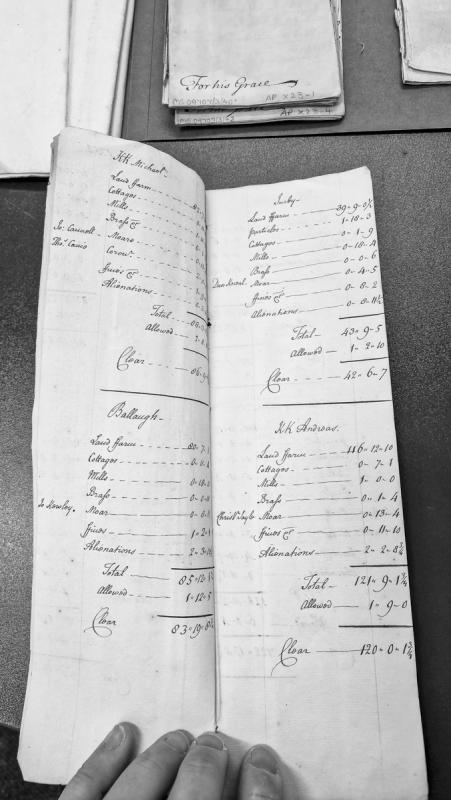 For his Grace
MS 09707/3/40
AP X23-1
AP X23-4
KK Michael.
Land ffarm
Cottages
Mills
Brass &c
Jo: Cannell Moare
Thos. Cams Coron
ffines &c
Alienations
Total
Allowed
Clear
Ballaugh
Land ffarm 80" 7" 1
Cottages
Mills
Brass
Jo Kewley. Moar
ffines
Alienations
Total 85" 12" 1
Allowed 1" 12" 5
Clear 83" 19" 8
Jurby
Land ffarm 39" 9" 0¼
particles 1" 18" 3
Cottages 0" 1" 9
Mills 0" 18" 4
Brass 0" 0" 6
Moar 0" 4" 5
ffines &c 0" 8" 2
Alienations 0" 8" 11½
Total 43" 9" 5
Allowed 1" 2" 10
Clear 42" 6" 7
KK Andreas.
Land ffarm 116" 12" 10
Cottages 0" 7" 1
Mills 1" 0" 0
Brass 0" 1" 4
Christ Tayle Moar 0" 13" 4
ffines &c 0" 11" 10
Alienations 2" 2" 8¾
Total 121" 9" 1¾
Allowed 1" 9" 0
Clear 120" 0" 1¾